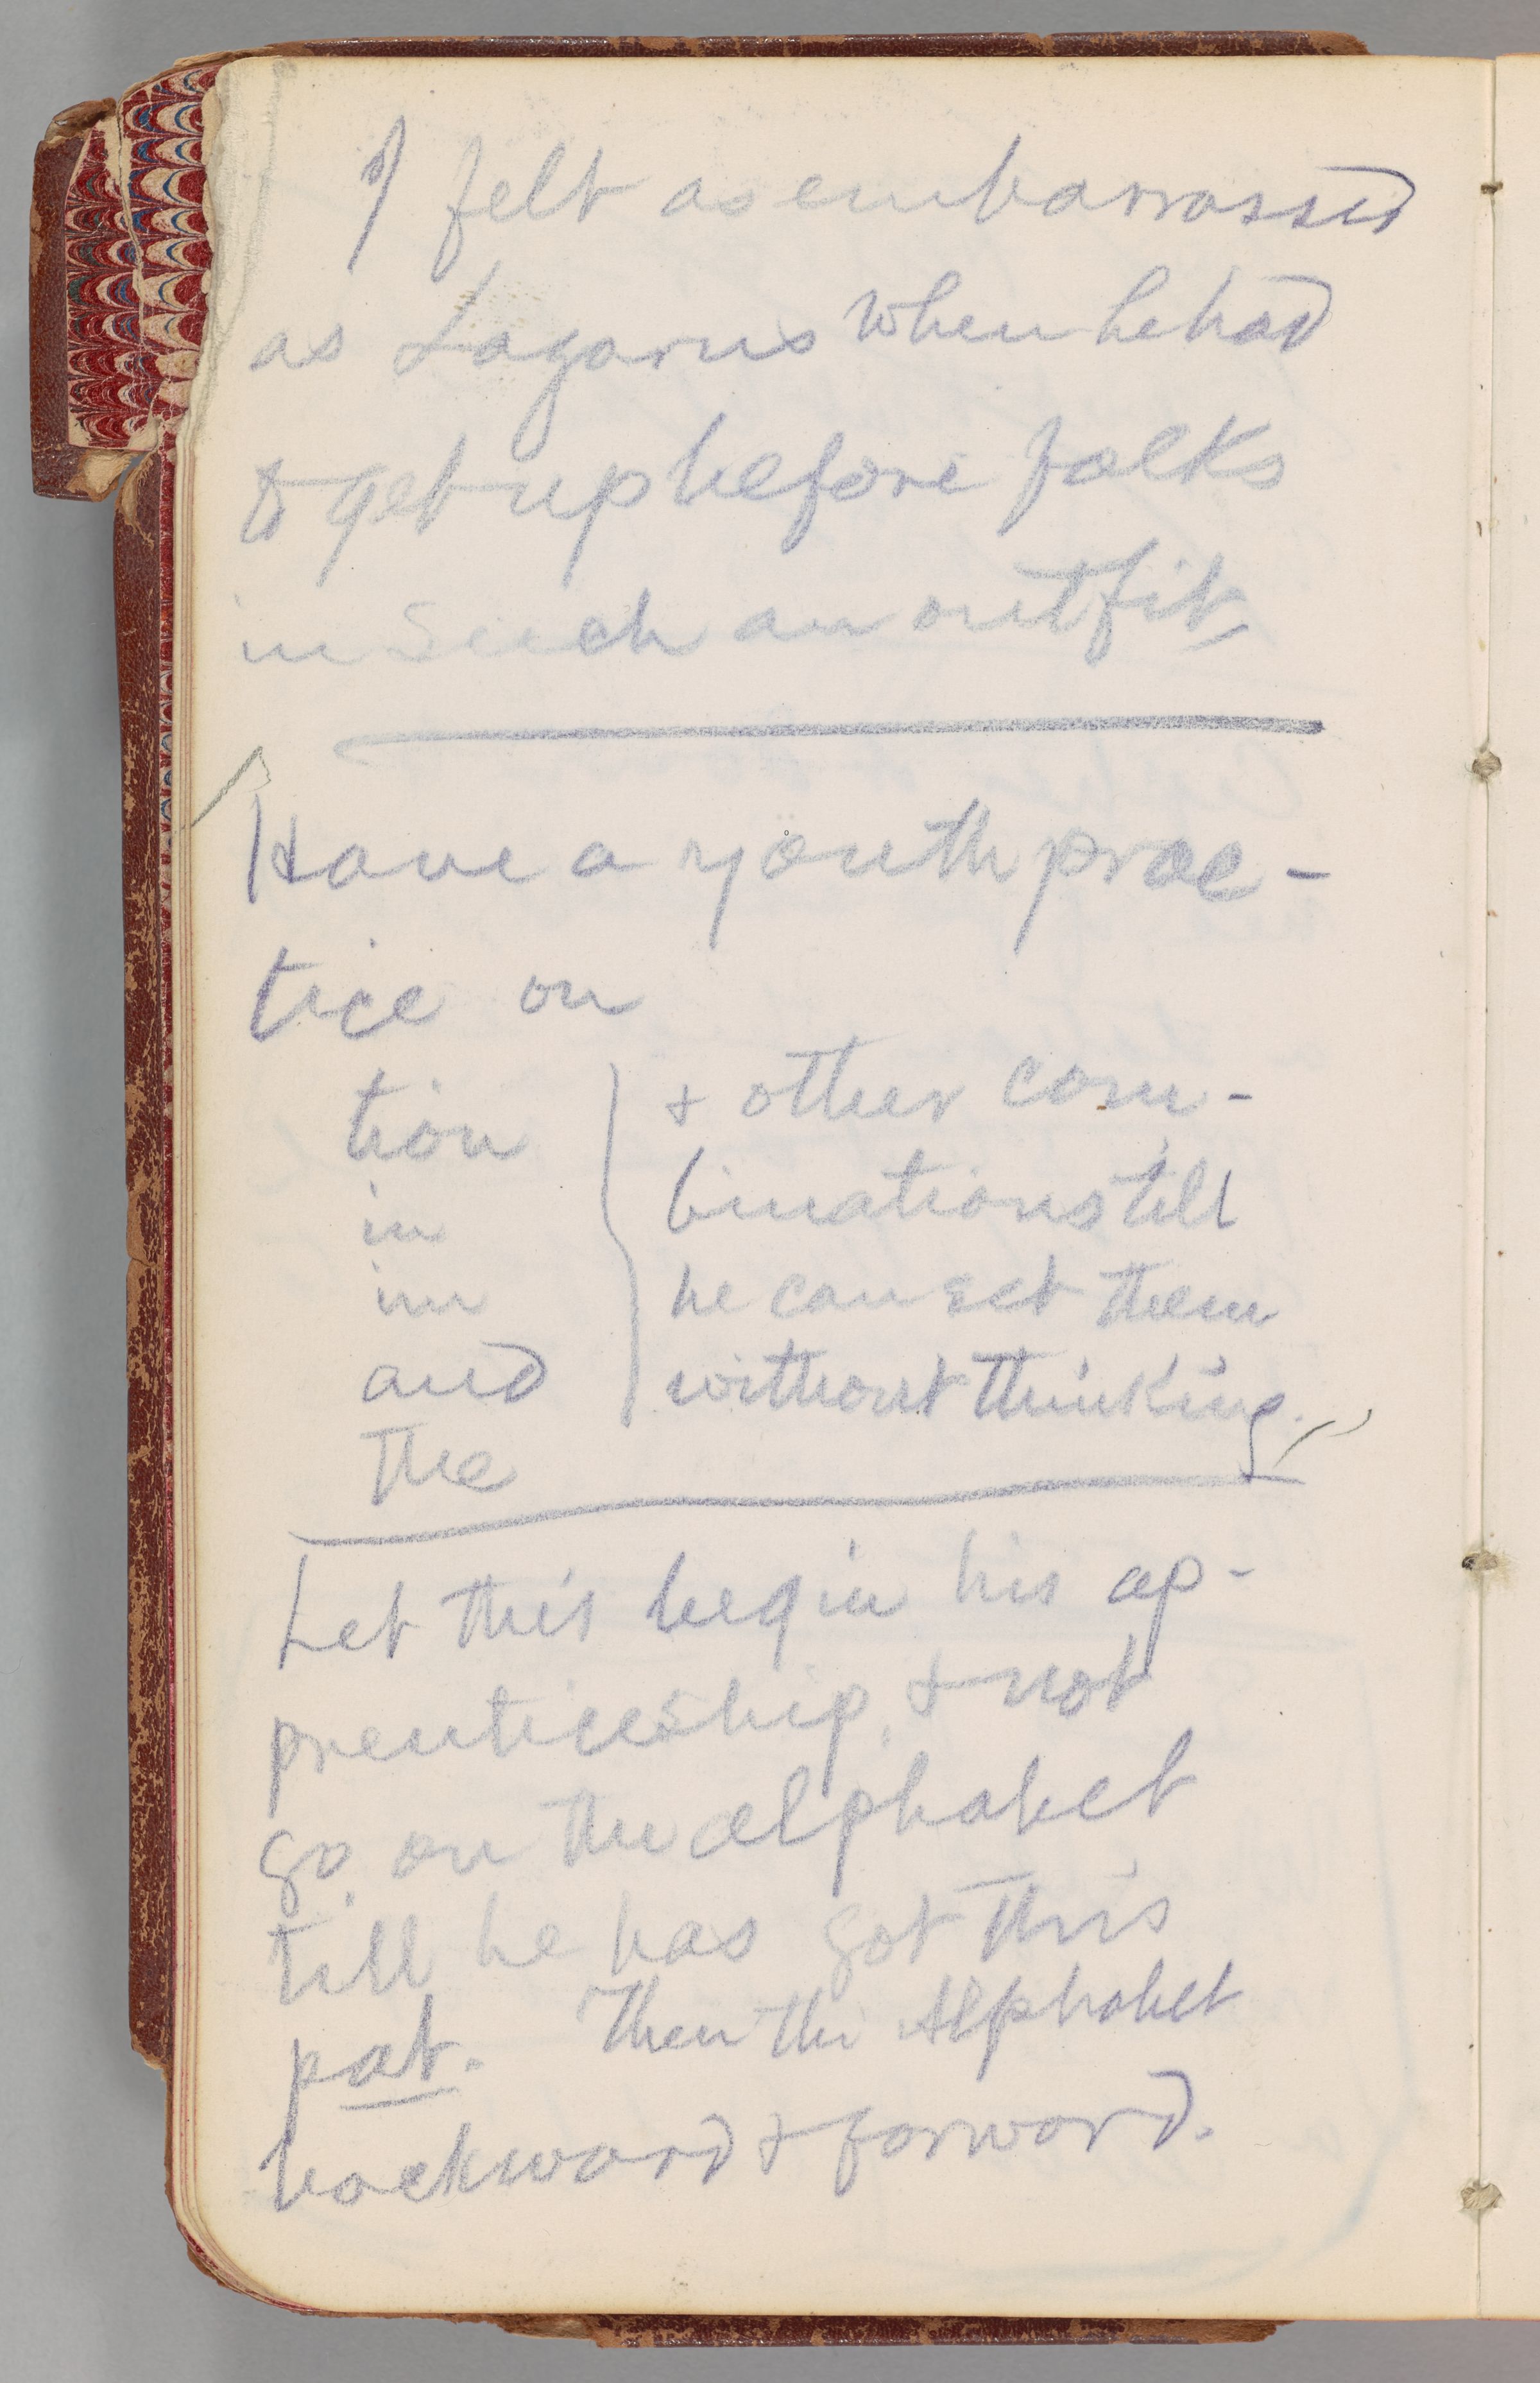 I felt as embarrassed
as Lazarus when he had
to get up before folks
in such an outfit.
Have a youth prac-
tice on
tion
in
im
and
the
& other com-
binations till
he can set them
without thinking.
Let this begin his ap-
prenticeship, & not
go on the alphabet
till he has got this
pat. Then the Alphabet
backward & forward.